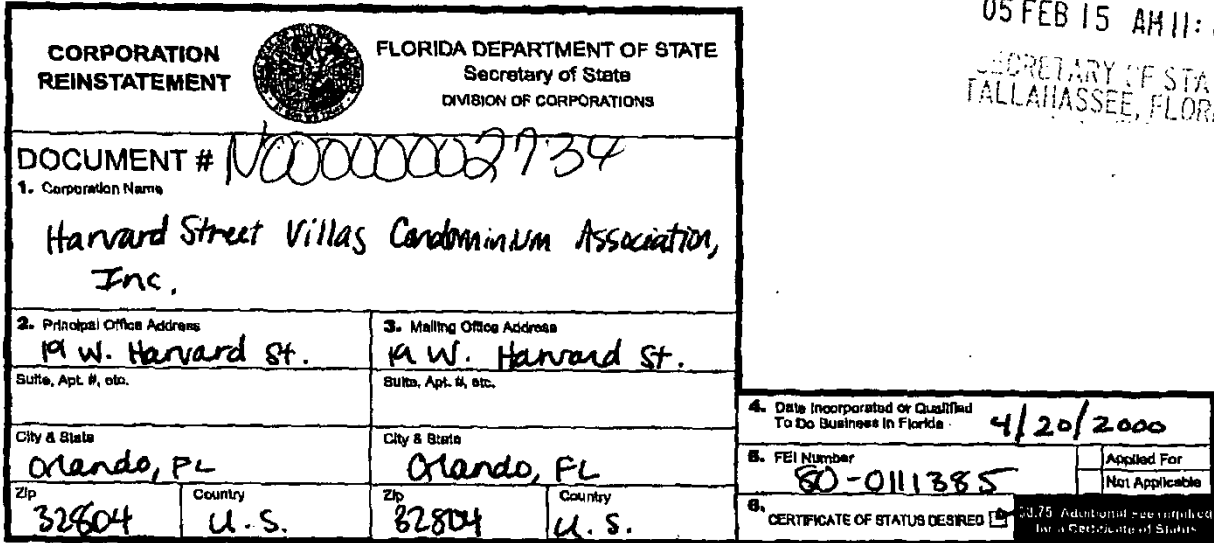 05 FEB 15 AM 11:
SECRETARY OF STA
TALLAHASSEE, FLOR
CORPORATION
REINSTATEMENT
FLORIDA DEPARTMENT OF STATE
Secretary of State
DIVISION OF CORPORATIONS
DOCUMENT # N00000002734
1. Corporation Name
Harvard Street Villas Condominium Association,
Inc.
2. Principal Office Address
19 W. Harvard St.
3. Mailing Office Address
19 W. Harvard St.
Suite, Apt. #, etc.
Suite, Apt. #, etc.
City & State
Orlando, FL
City & State
Orlando, FL
Zip
32804
Country
U.S.
Zip
32804
Country
U.S.
4. Date Incorporated or Qualified
To Do Business in Florida
4/20/2000
5. FEI Number
80-0111385
Applied For
Not Applicable
6. CERTIFICATE OF STATUS DESIRED
$8.75 Additional Fee required
for a Certificate of Status